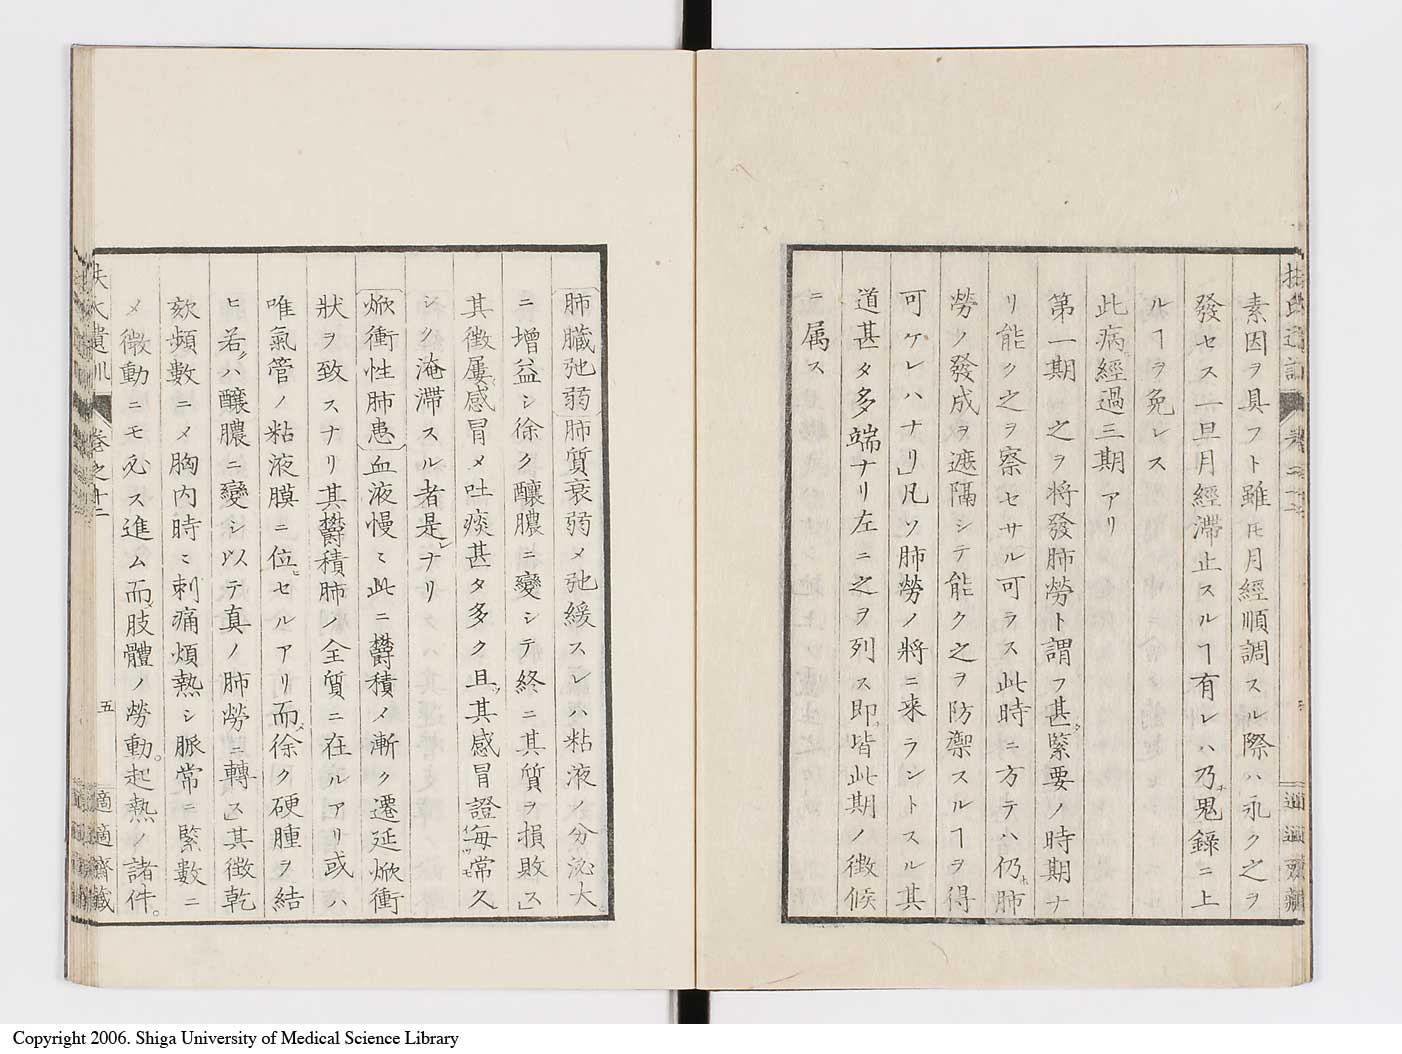 素因ヲ具フト雖モ月經順調スル際ハ永ク之ヲ
發セス一旦月經滯止スルヿ有レハ乃チ鬼錄ニ上
ルヿヲ免レス
此病經過三期アリ
第一期 之ヲ將發肺勞ト謂フ甚タ緊要ノ時期ナ
リ能ク之ヲ察セサル可ラス此時ニ方テハ仍ホ肺
勞ノ發成ヲ遮隔シテ能ク之ヲ防禦スルヿヲ得
可ケレハナリ」凡ソ肺勞ノ將ニ来ラントスル其
道甚タ多端ナリ左ニ之ヲ列ス即チ皆此期ノ徴候
ニ属ス
肺臓弛弱 肺質衰弱メ弛緩スレハ粘液ノ分泌大
ニ增益シ徐ク釀膿ニ變シテ終ニ其質ヲ損敗ス」
其徴屢感冒メ吐痰甚タ多ク且ツ其感冒證每常久
シク淹滯スル者是レナリ
焮衝性肺患 血液慢ミ此ニ欝積メ漸ク遷延焮衝
狀ヲ致スナリ其欝積肺ノ全質ニ在ルアリ或ハ
唯氣管ノ粘液膜ニ位セルアリ而メ徐ク硬腫ヲ結
ヒ若クハ釀膿ニ變シ以テ真ノ肺勞ニ轉ス」其徴乾
欬頻數ニメ胸内時ミ刺痛煩熱シ脈常ニ緊數ニ
メ微動ニモ必ス進ム而メ肢體ノ勞動。起熱ノ諸件。
扶氏遺訓 卷之十二 五 適適齋藏